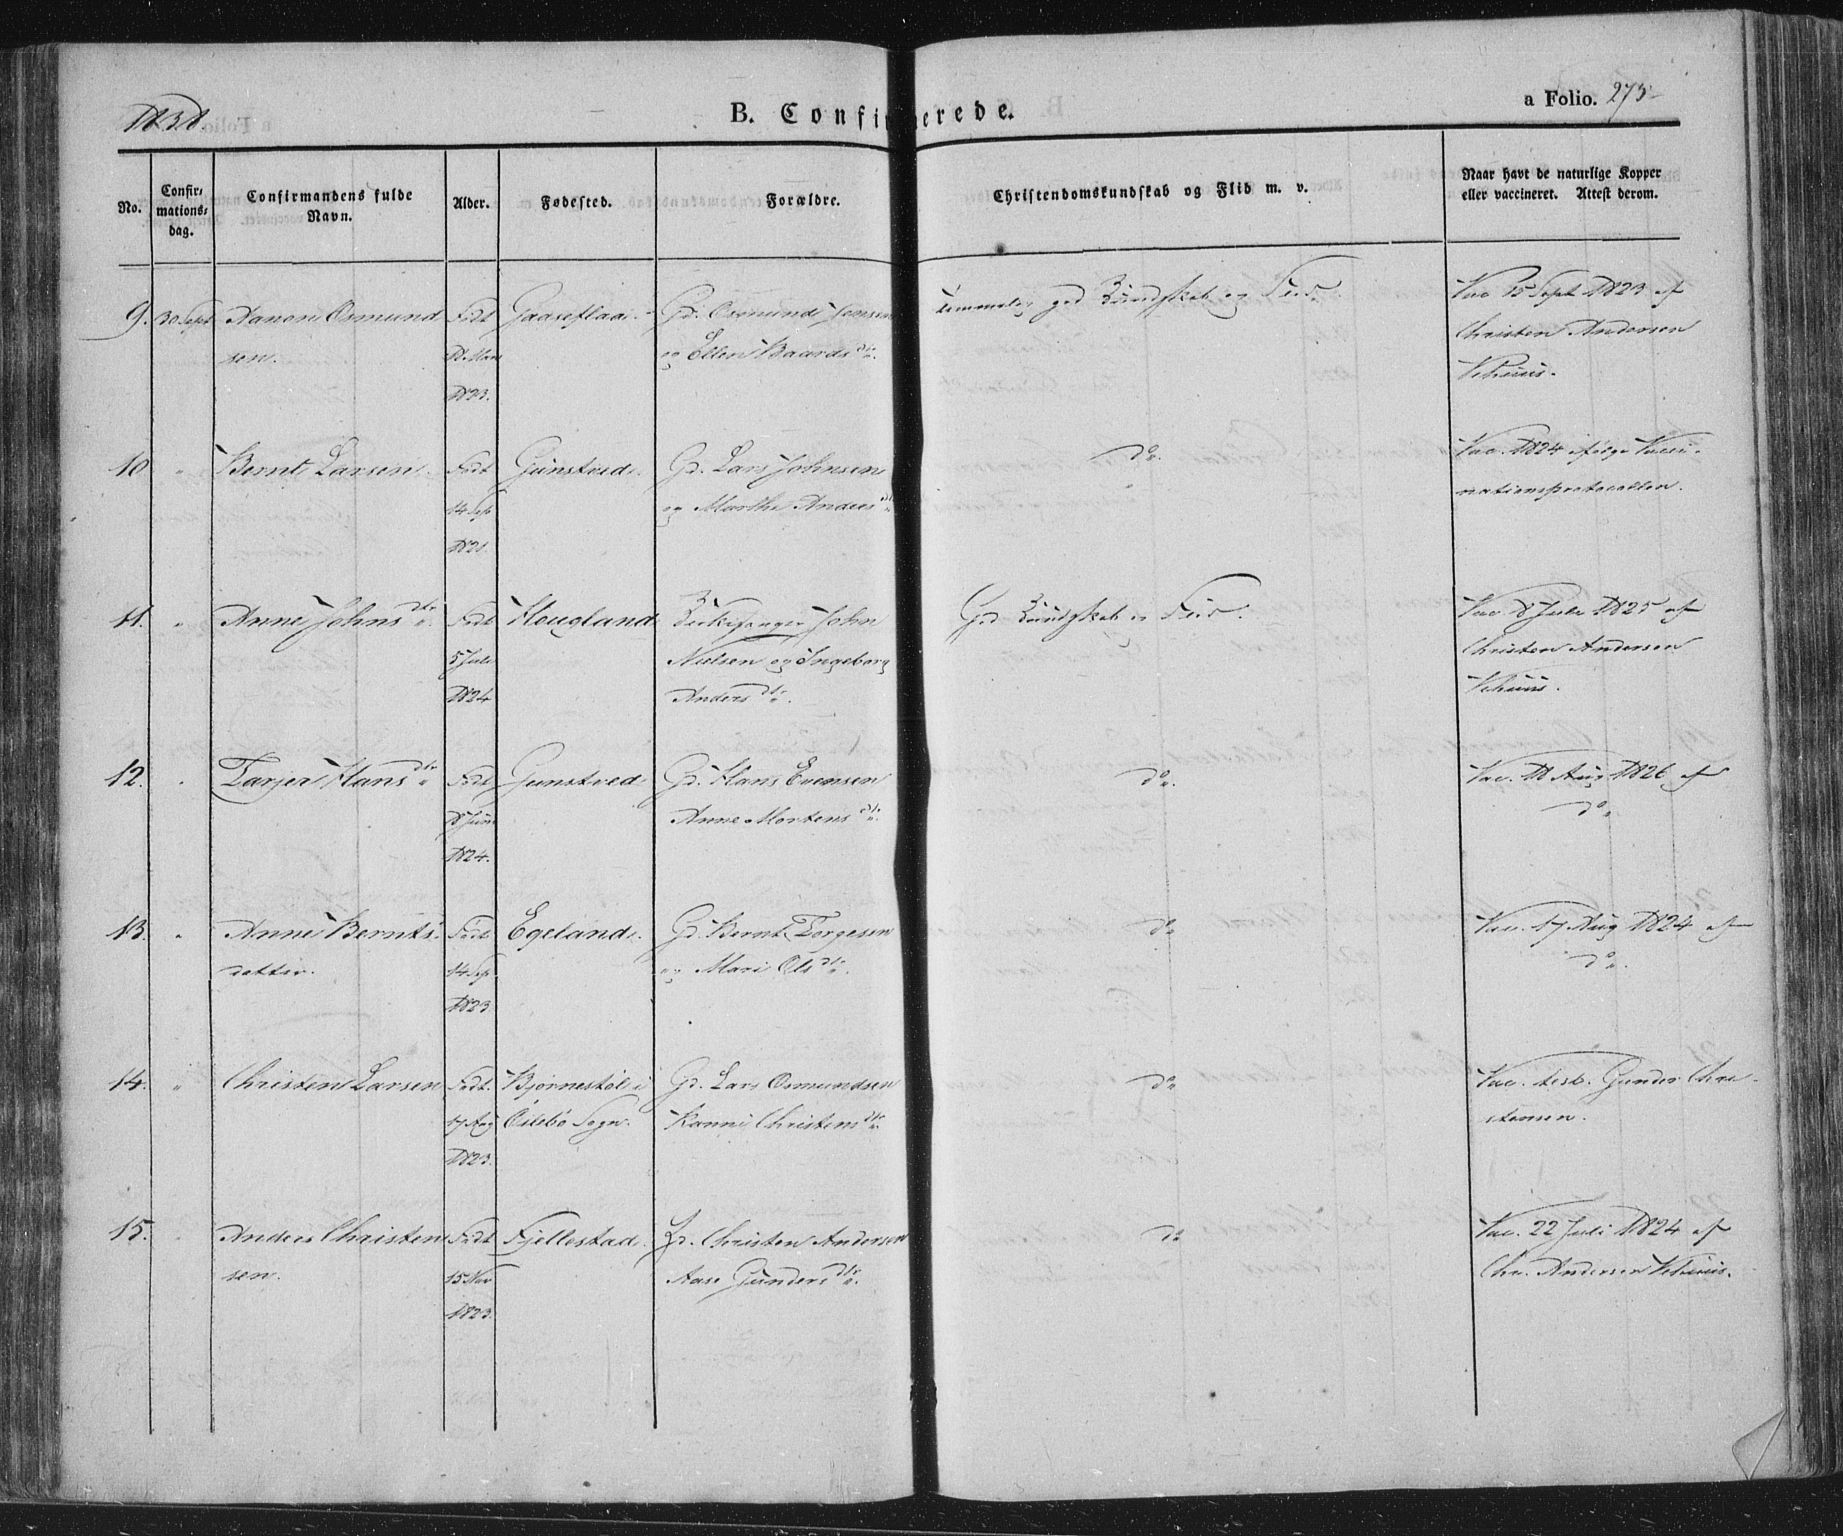 1838.
B. Confirmerede.
a Folio. 275
No.
Confir-
mations-
dag.
Confirmandens fulde
Navn.
Alder.
Fødested.
Forældre.
Christendomskundskab og Flid m. v.
Naar havt de naturlige Kopper
eller vaccineret. Attest derom.
9. 30 Sept Aanon Osmund Født Gaaseflaa. Gd. Osmund Jensen temmelig god Kundskab og Flid. Vac 15 Sept 1823 af
sen. og Ellen Baards dtr. Christen Andersen
1823. Vehuus.
10 " Bernt Larsen. Født Gunstved. Gd. Lars Johnsen do. Vac. 1824 ifølge Vacci-
14 Sep og Marthe Anders dtr nationsprotocollen.
1821.
11. " Anne Johns dtr. Født Hougland Kirkesanger John God Kundskab og Flid. Vac 8 Juli 1825 af
5 Juli Nielsen og Ingeborg Christen Andersen
1824 Anders dtr. Vehuus.
12. " Tarjer Hans dtr Født Gunstved. Gd. Hans Evensen do. Vac. 18 Aug 1826 af
8 Juni Anne Mortens dtr. do
1824.
13. " Anne Bernts- Født Egeland. Gd. Bernt Torgesen do Vac. 17 Aug 1824 af
datter. 14 Sep og Mari Ols dtr. do.
1823
14. " Christen Larsen Født. Bjørnestøl i Gd. Lars Osmundsen do Vac. test. Gunder Chri-
17 Aug Øslebø Sogn. Ranni Christens dtr stensen.
1823.
15. Anders Christen Født Fjellestad. Gd. Christen Andersen do Vac. 22 Juli 1824 af
sen. 15 Nov Aase Gunders dtr. Chr. Andersen Vehuus.
1823.